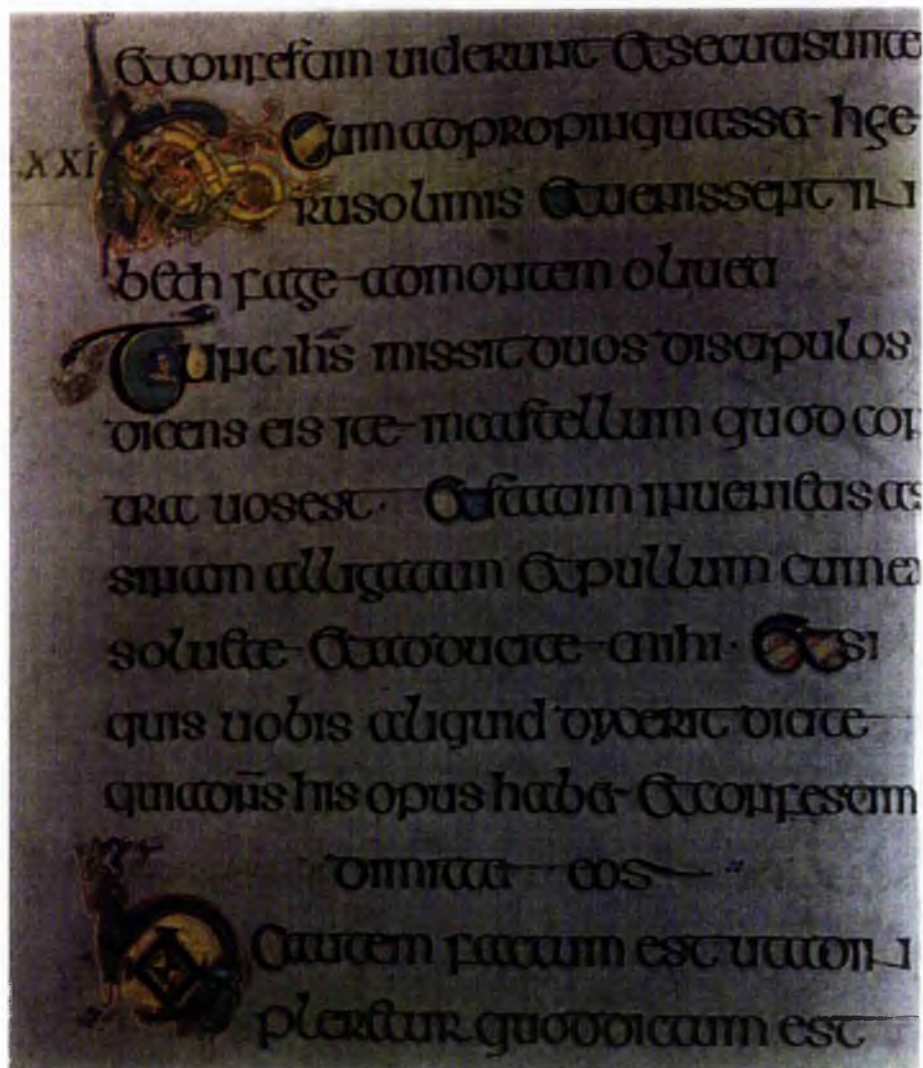 et confestim uiderunt et secuti sunt e
.XXI Et Cum adpropinquasset hie
rusolimis et uenissent in
beth fage ad montem oliueti
Tunc ihs missit duos discipulos
dicens eis ite in castellum quod con
tra uos est · Et statim inuenitis as
sinam alligatam et pullum cum e
soluite et adducite mihi · Et si
quis uobis aliquid dixerit dicite
quia dns his opus habet et confestim
dimittet eos
Hoc autem factum est ut ad in
pleretur quod dictum est